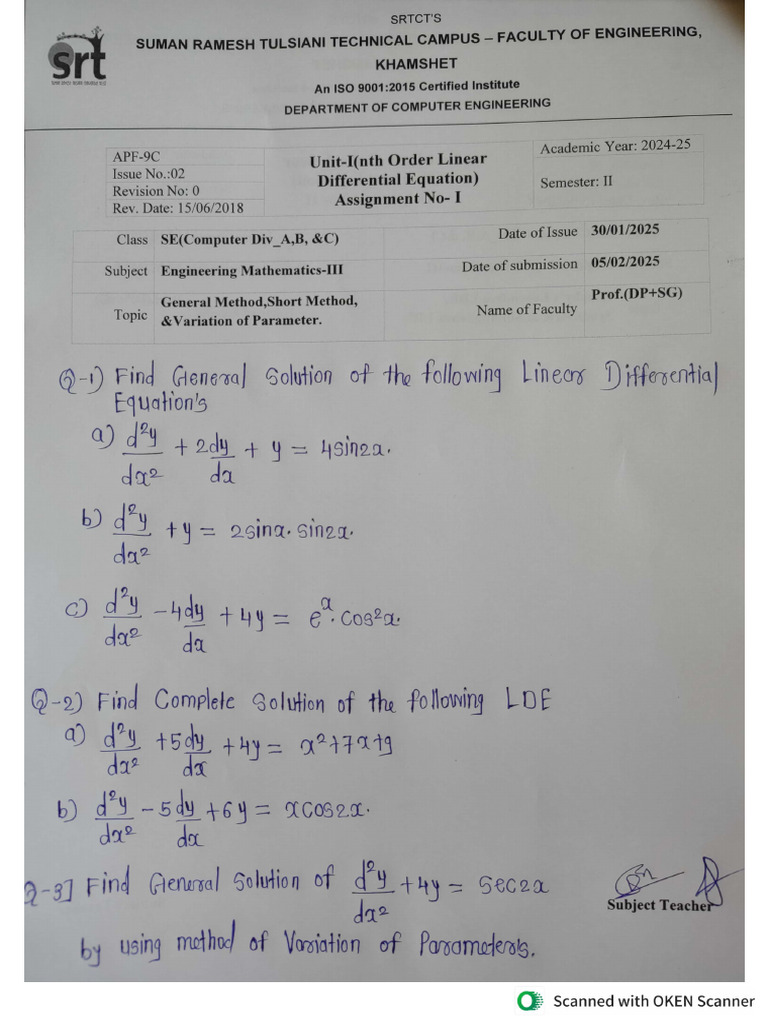 SRTCT'S
SUMAN RAMESH TULSIANI TECHNICAL CAMPUS – FACULTY OF ENGINEERING,
KHAMSHET
An ISO 9001:2015 Certified Institute
DEPARTMENT OF COMPUTER ENGINEERING
srt
APF-9C
Issue No.:02
Revision No: 0
Rev. Date: 15/06/2018
Unit-I(nth Order Linear
Differential Equation)
Assignment No- I
Academic Year: 2024-25
Semester: II
Class SE(Computer Div_A,B, &C) Date of Issue 30/01/2025
Subject Engineering Mathematics-III Date of submission 05/02/2025
Topic General Method,Short Method, &Variation of Parameter. Name of Faculty Prof.(DP+SG)
Q-1) Find General Solution of the following Linear Differential
Equation's
a) d²y/dx² + 2dy/dx + y = 4sin2x.
b) d²y/dx² + y = 2sinx. sin2x.
c) d²y/dx² - 4dy/dx + 4y = eˣ. cos²x.
Q-2) Find Complete Solution of the following LDE
a) d²y/dx² + 5dy/dx + 4y = x²+7x+9
b) d²y/dx² - 5dy/dx + 6y = xcos2x.
Q-3] Find General Solution of d²y/dx² + 4y = sec2x
by using method of Variation of Parameter's.
Subject Teacher
Scanned with OKEN Scanner